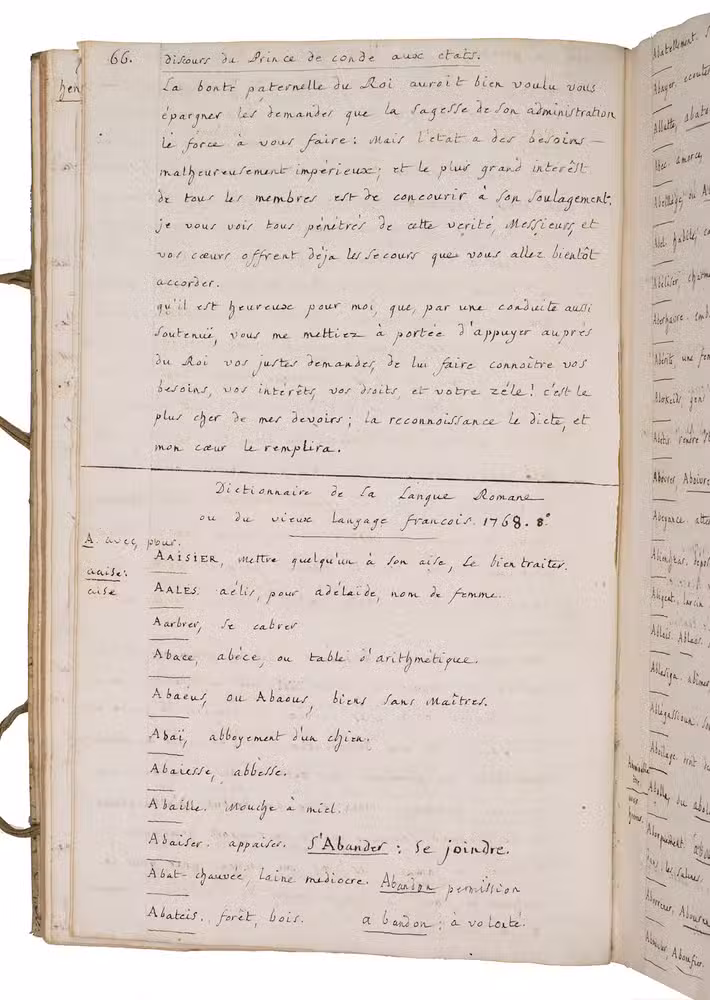 66. discours du Prince de condé aux etats.
La bonté paternelle du Roi auroit bien voulu vous
épargner les demandes que la sagesse de son administration
le force à vous faire: Mais l'etat a des besoins —
malheureusement impérieux; et le plus grand interêst
de tous les membres est de concourir à son soulagement.
je vous vois tous pénétrés de cette verité, Messieurs, et
vos cœurs offrent déja les secours que vous allez bientôt
accorder.
qu'il est heureux pour moi, que, par une conduite aussi
soutenuë, vous me mettiez à portée d'appuyer auprés
du Roi vos justes demandes, de lui faire connoître vos
besoins, vos intérêts, vos droits, et votre zéle! c'est le
plus cher de mes devoirs; la reconnoissance le dicte, et
mon cœur le remplira.
Dictionnaire de la Langue Romane
ou du vieux langage francois. 1768. 8°
A. avec, pour.
AAISIER, mettre quelqu'un à son aise, le bien traiter.
aaise:
aise
AALES. aélis, pour adélaïde, nom de femme.
Aarbrer, se cabrer
Abace, abéce, ou table d'arithmétique.
Abaëus, ou Abaous, biens sans Maîtres.
Abaï, abboyement d'un chien.
Abaiesse, abbesse.
Abaille. Mouche à miel.
Abaiser. appaiser. S'Abander: se joindre.
Abat-chauvée, laine mediocre. Abandon permission
Abateis. forêt, bois. a bandon: à volonté.
hen
Abatellement.
Abayer. ecouter
Abel. habile,
Abéliser, charm
Abetis rendre
Abeyance atten